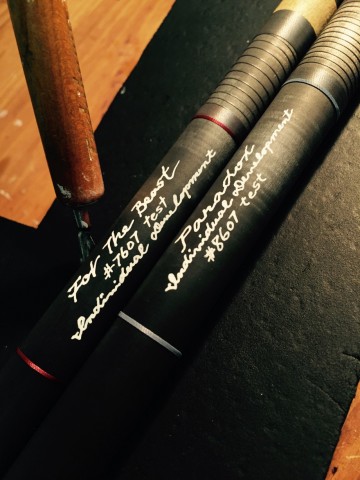 For The Beast
#-7607 test
Individual Development
Paradox
Individual Development
#8607 test